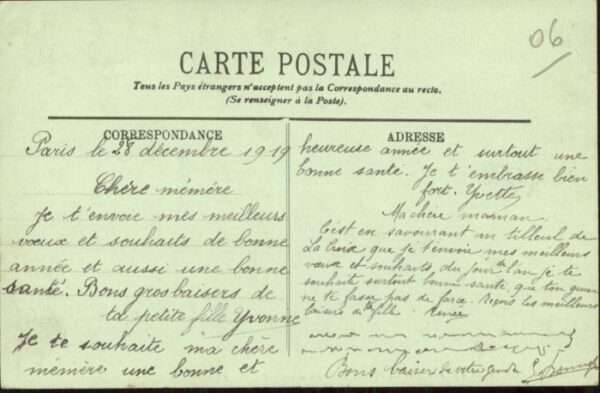 06
CARTE POSTALE
Tous les Pays étrangers n'acceptent pas la Correspondance au recto.
(Se renseigner à la Poste).
CORRESPONDANCE
Paris le 28 décembre 1919
Chère mémère
Je t'envoie mes meilleurs
vœux et souhaits de bonne
année et aussi une bonne
santé. Bons gros baisers de
ta petite fille Yvonne
Je te souhaite ma chère
mémère une bonne et
ADRESSE
heureuse année et surtout une
bonne santé. Je t'embrasse bien
fort. Yvette
Ma chère maman
C'est en savourant un tilleul de
La Croix que je t'envoie mes meilleurs
vœux et souhaits, du jour de l'an je te
souhaite surtout bonne santé, que ton
ne te fasse pas de farce. Reçois les meilleurs
baisers de ta fille Renée
Bons baiser de votre gendre